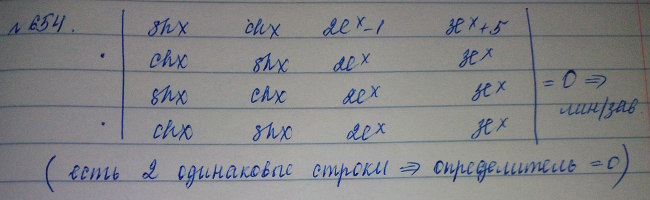 №654. | shx chx 2e^x-1 3e^x+5 |
• | chx shx 2e^x 3e^x |
| shx chx 2e^x 3e^x | = 0 ⇒
• | chx shx 2e^x 3e^x | лин/зав.
( есть 2 одинаковые строки ⇒ определитель = 0)